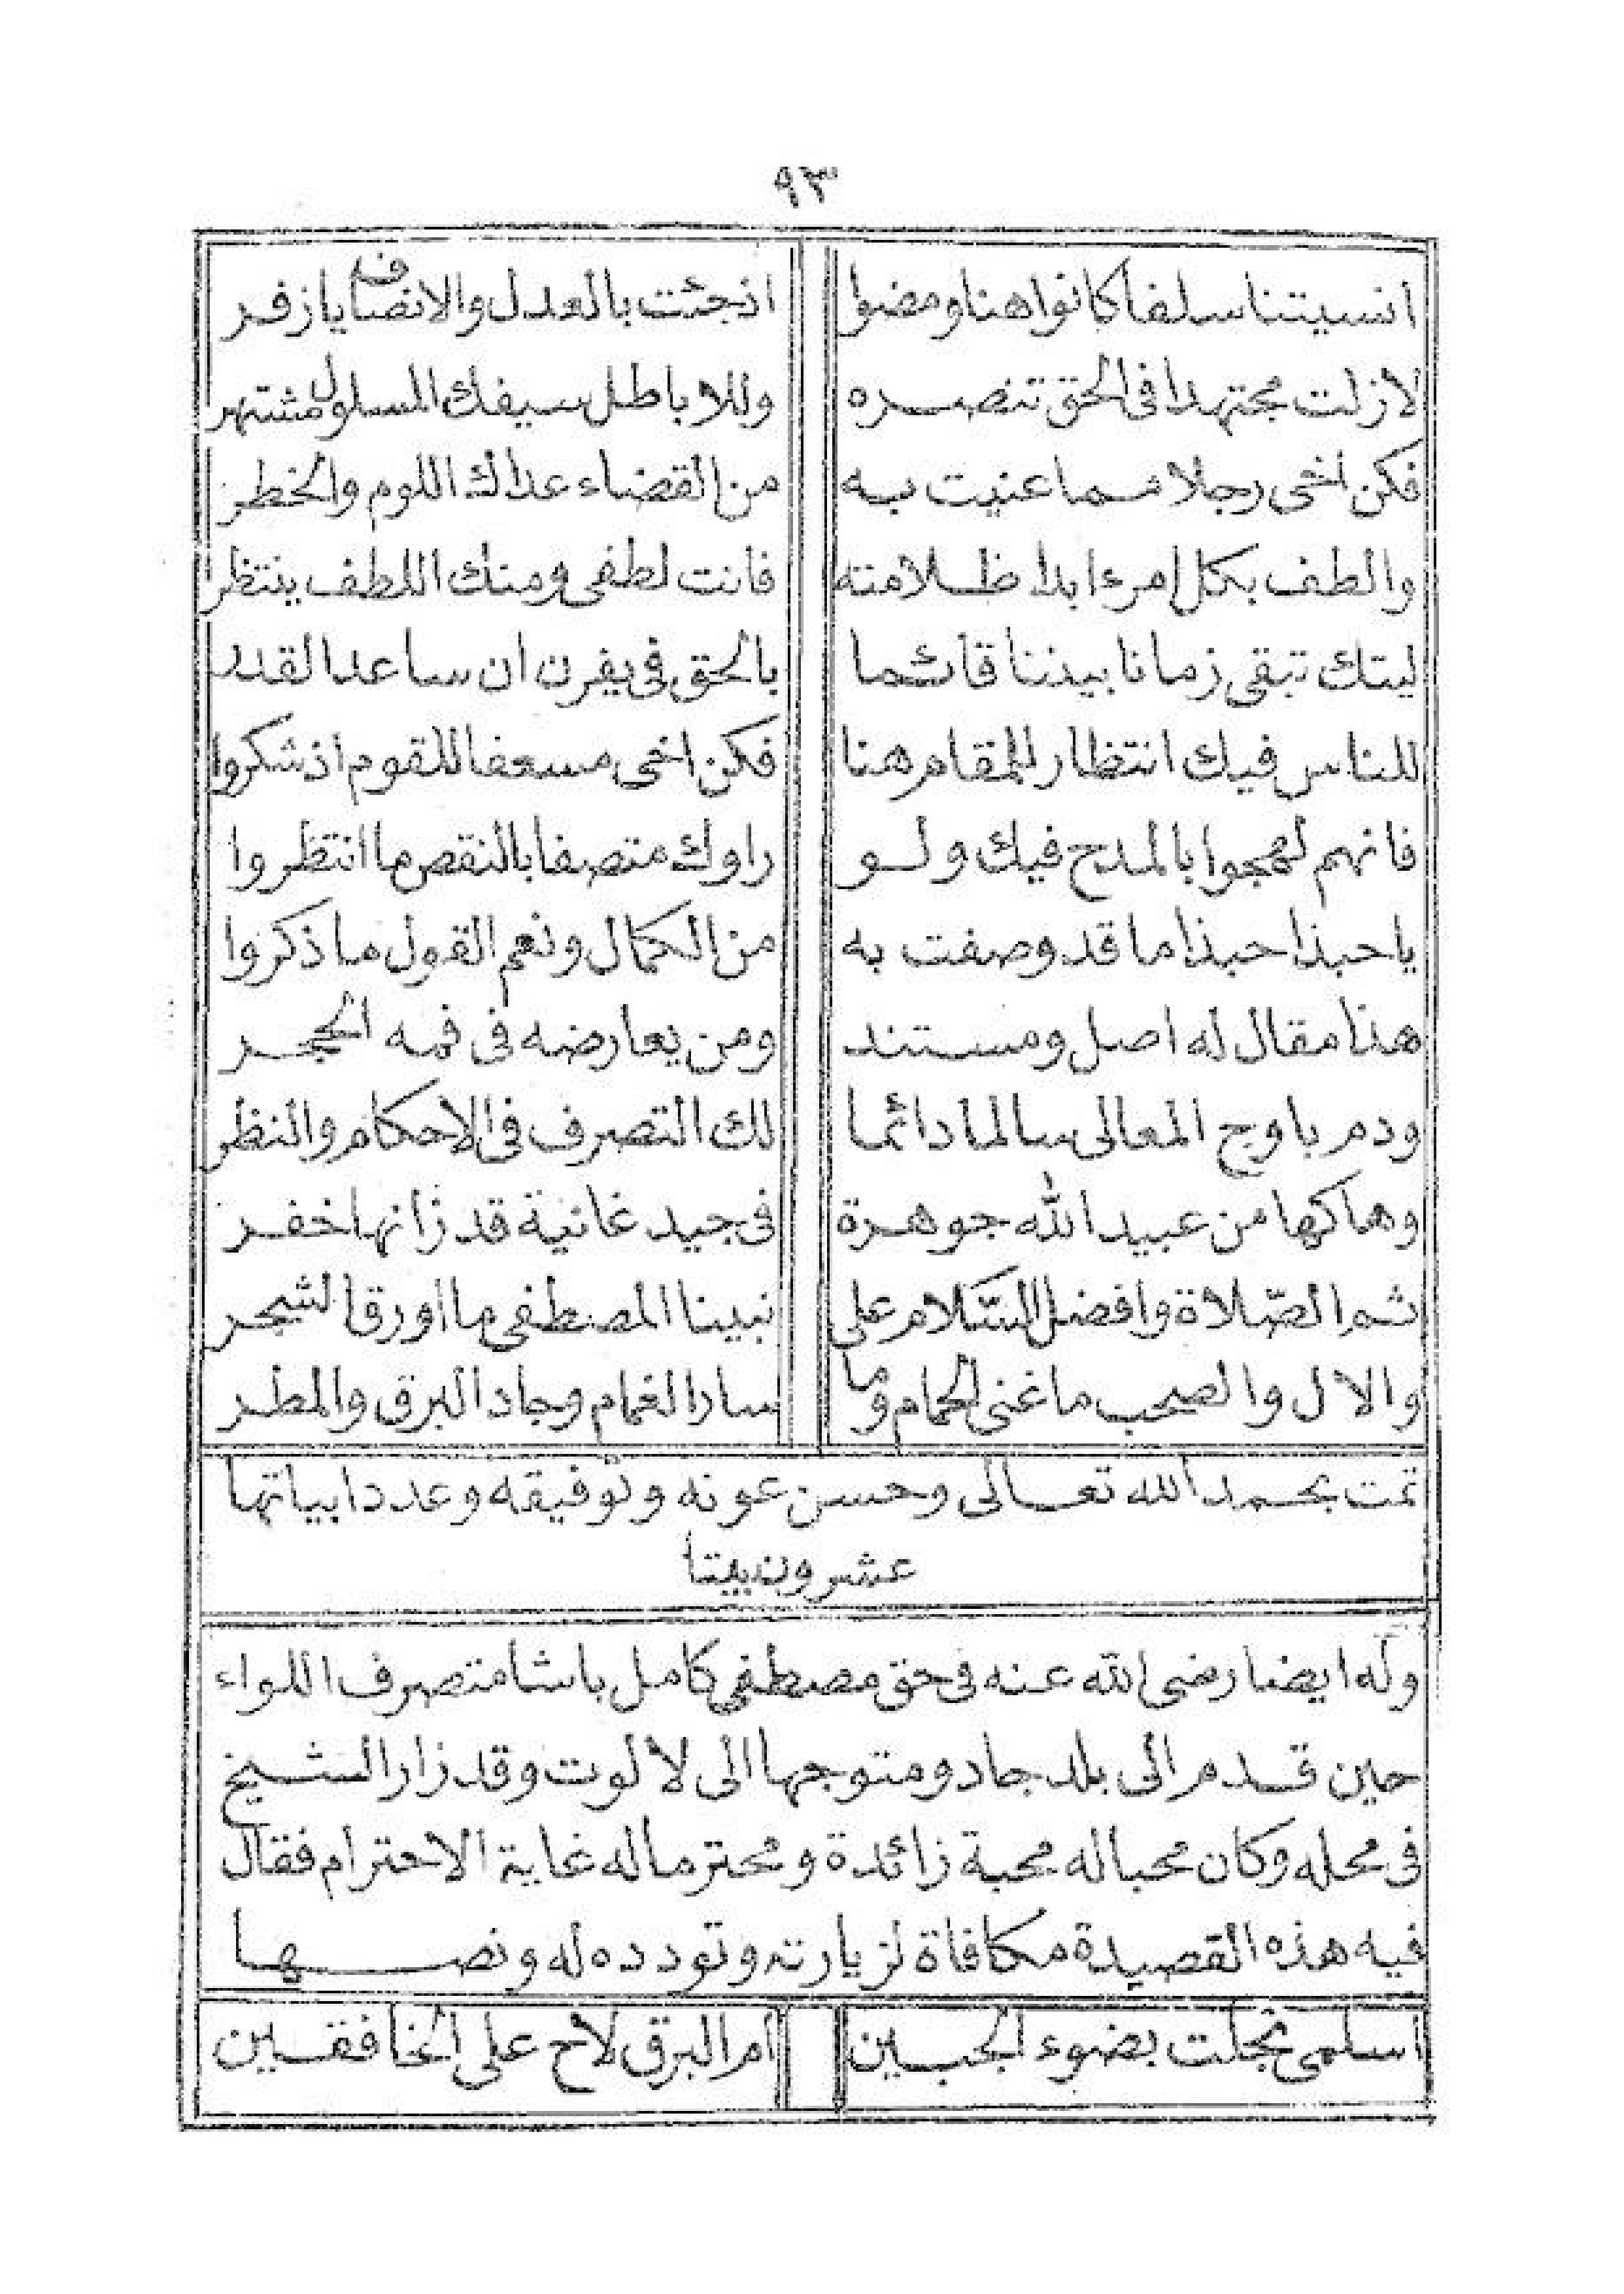 ٩٣
انسيتنا سلفا كانوا هنا ومضوا اذ جئت بالعدل والانصاف يا زفر
لازلت مجتهدا فى الحق تنصره وللاباطل سيفك المسلول مشتهر
فكن اخى رجلا مما عنيت به من القضاء عداك اللوم والخطر
والطف بكل امرء ابدا ظلامته فانت لطفى ومنك اللطف ينتظر
ليتك تبقى زمانا بيننا قائما بالحق فى يفرن ان ساعد القدر
للناس فيك انتظار للمقام هنا فكن اخى مسعفا للقوم اذ شكروا
فانهم لهجوا بالمدح فيك ولو راوك متصفا بالنقص ما انتظروا
يا حبذا حبذا ما قد وصفت به من الكمال ونعم القول ما ذكروا
هذا مقال له اصل ومستند ومن يعارضه فى فمه الحجر
ودم باوج المعالى سالما دائما لك التصرف فى الاحكام والنظر
وهاكها من عبيد الله جوهرة فى جيد غانية قد زانها خفر
ثم الصّلاة وافضل السّلام على نبينا المصطفى ما أورق الشجر
والال والصحب ما غنى الحمام وما سار الغمام وجاد البرق والمطر
تمت بحمد الله تعالى وحسن عونه وتوفيقه وعدد ابياتها
عشرون بيتا
وله ايضا رضى الله عنه فى حق مصطفى كامل باشا متصرف اللواء
حين قدم الى بلد جادو متوجها الى لالوت وقد زار الشيخ
فى محله وكان محبا له محبة زائدة ومحترما له غاية الاحترام فقال
فيه هذه القصيدة مكافاة لزيارته وتودده له ونصها
اسلمى تجلت بضوء الجبين أم البرق لاح على الخافقين